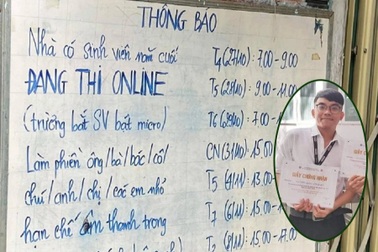 THÔNG BÁO
Nhà có sinh viên năm cuối
ĐANG THI ONLINE
(trường bắt SV bật micro)
Làm phiền ông/bà/bác/cô/
chú/anh/chị/các em nhỏ
hạn chế âm thanh trong
T4 (27/10): 7.00 - 9.00
T5 (28/10): 9.00 - 11.00
T6 (29/10): 7.00 -
CN (31/10): 15.00
T5 (4/11): 13.
T7 (6/11): 15.00
15.00
GIẤY CHỨNG NHẬN